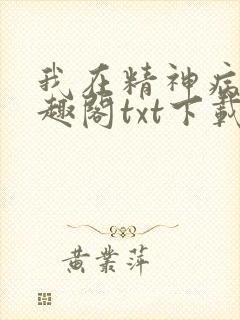 我在精神病
趣阁txt下载
黄业萍